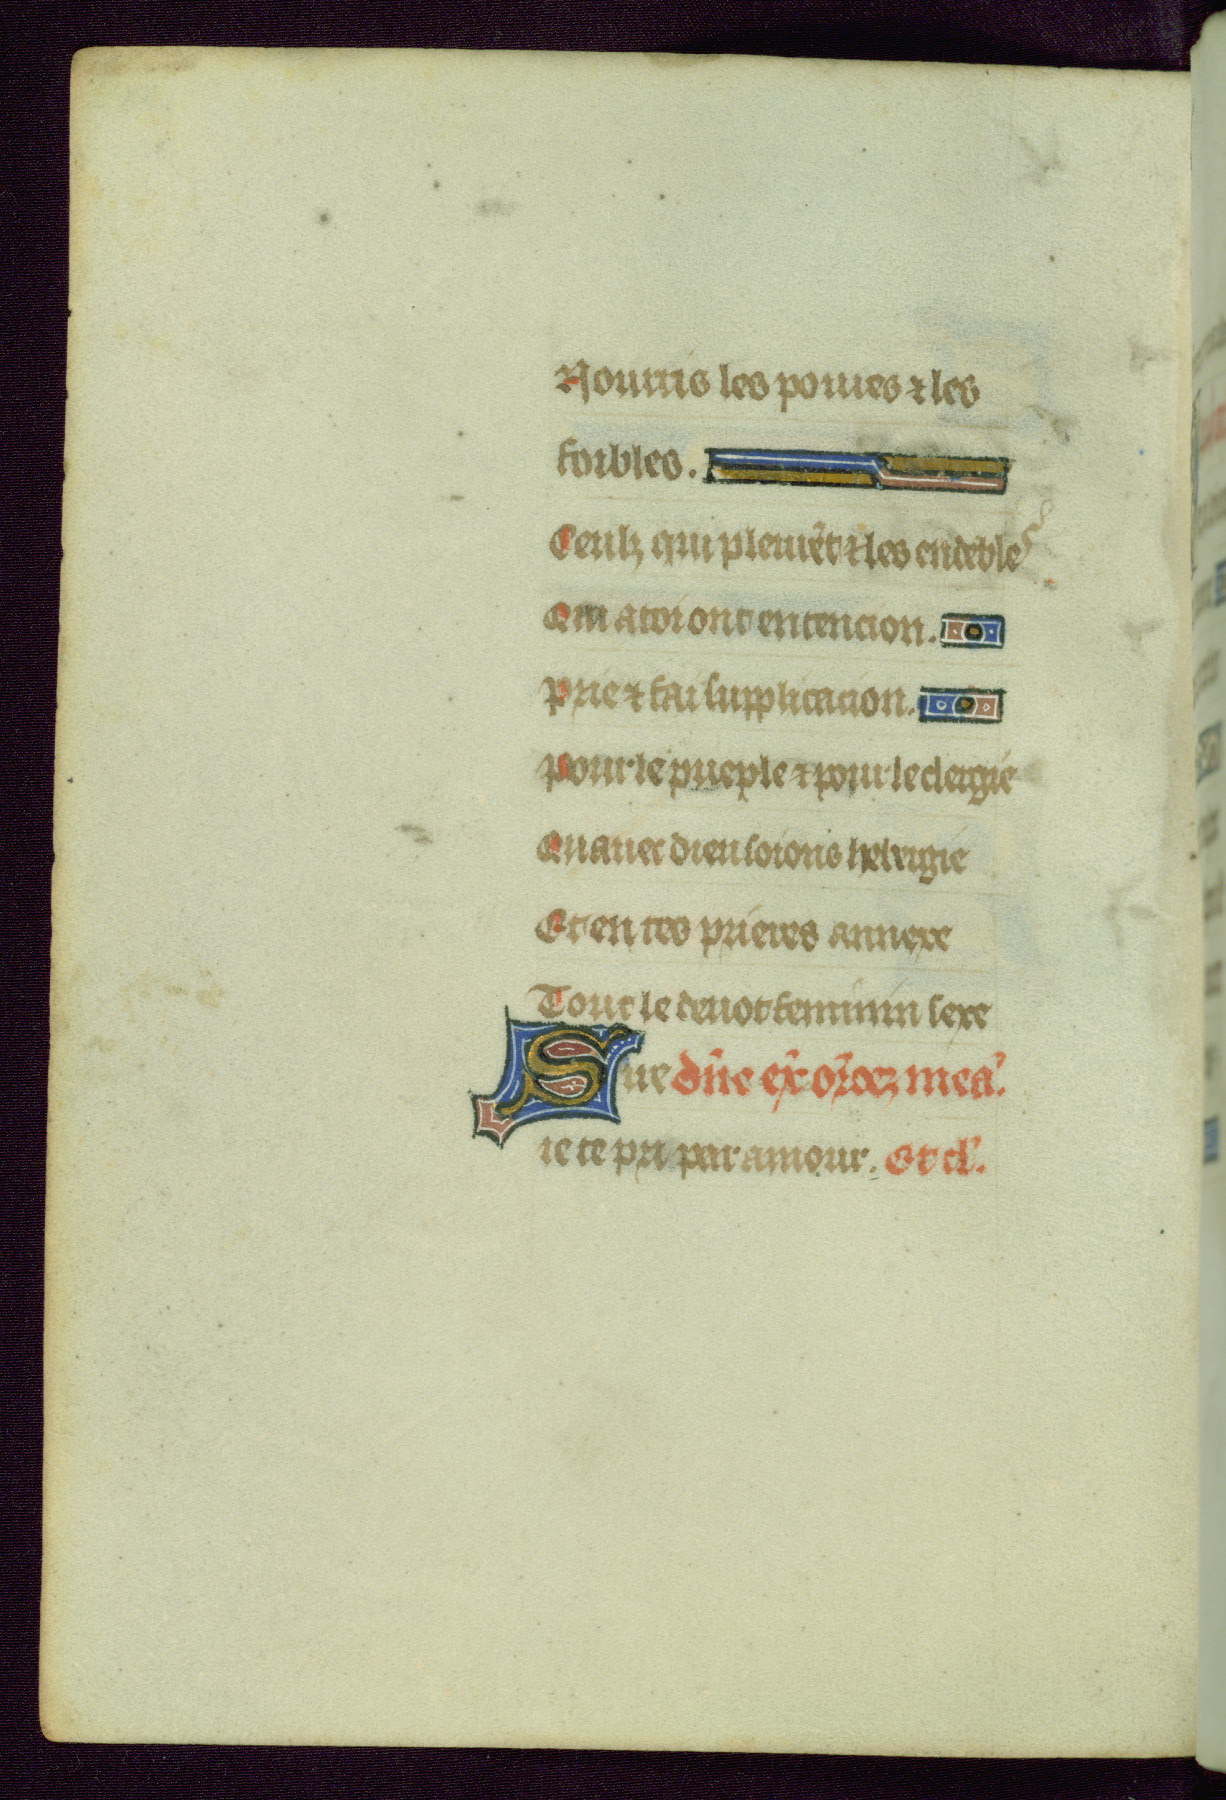 Nourris les poures ⁊ les
foibles.
Ceulz qui pleurẽt ⁊ les endebles
Qui a toi ont entencion.
Prie ⁊ fai supplicacion.
Pour le pueple ⁊ pour le clergie
Quauec dieu soions hebergie
Et en tes prieres annexe
Tout le deuot feminin sexe
Sire dñe ex̃ or̃oeʒ mea'.
ie te pri par amour. Et cl'.